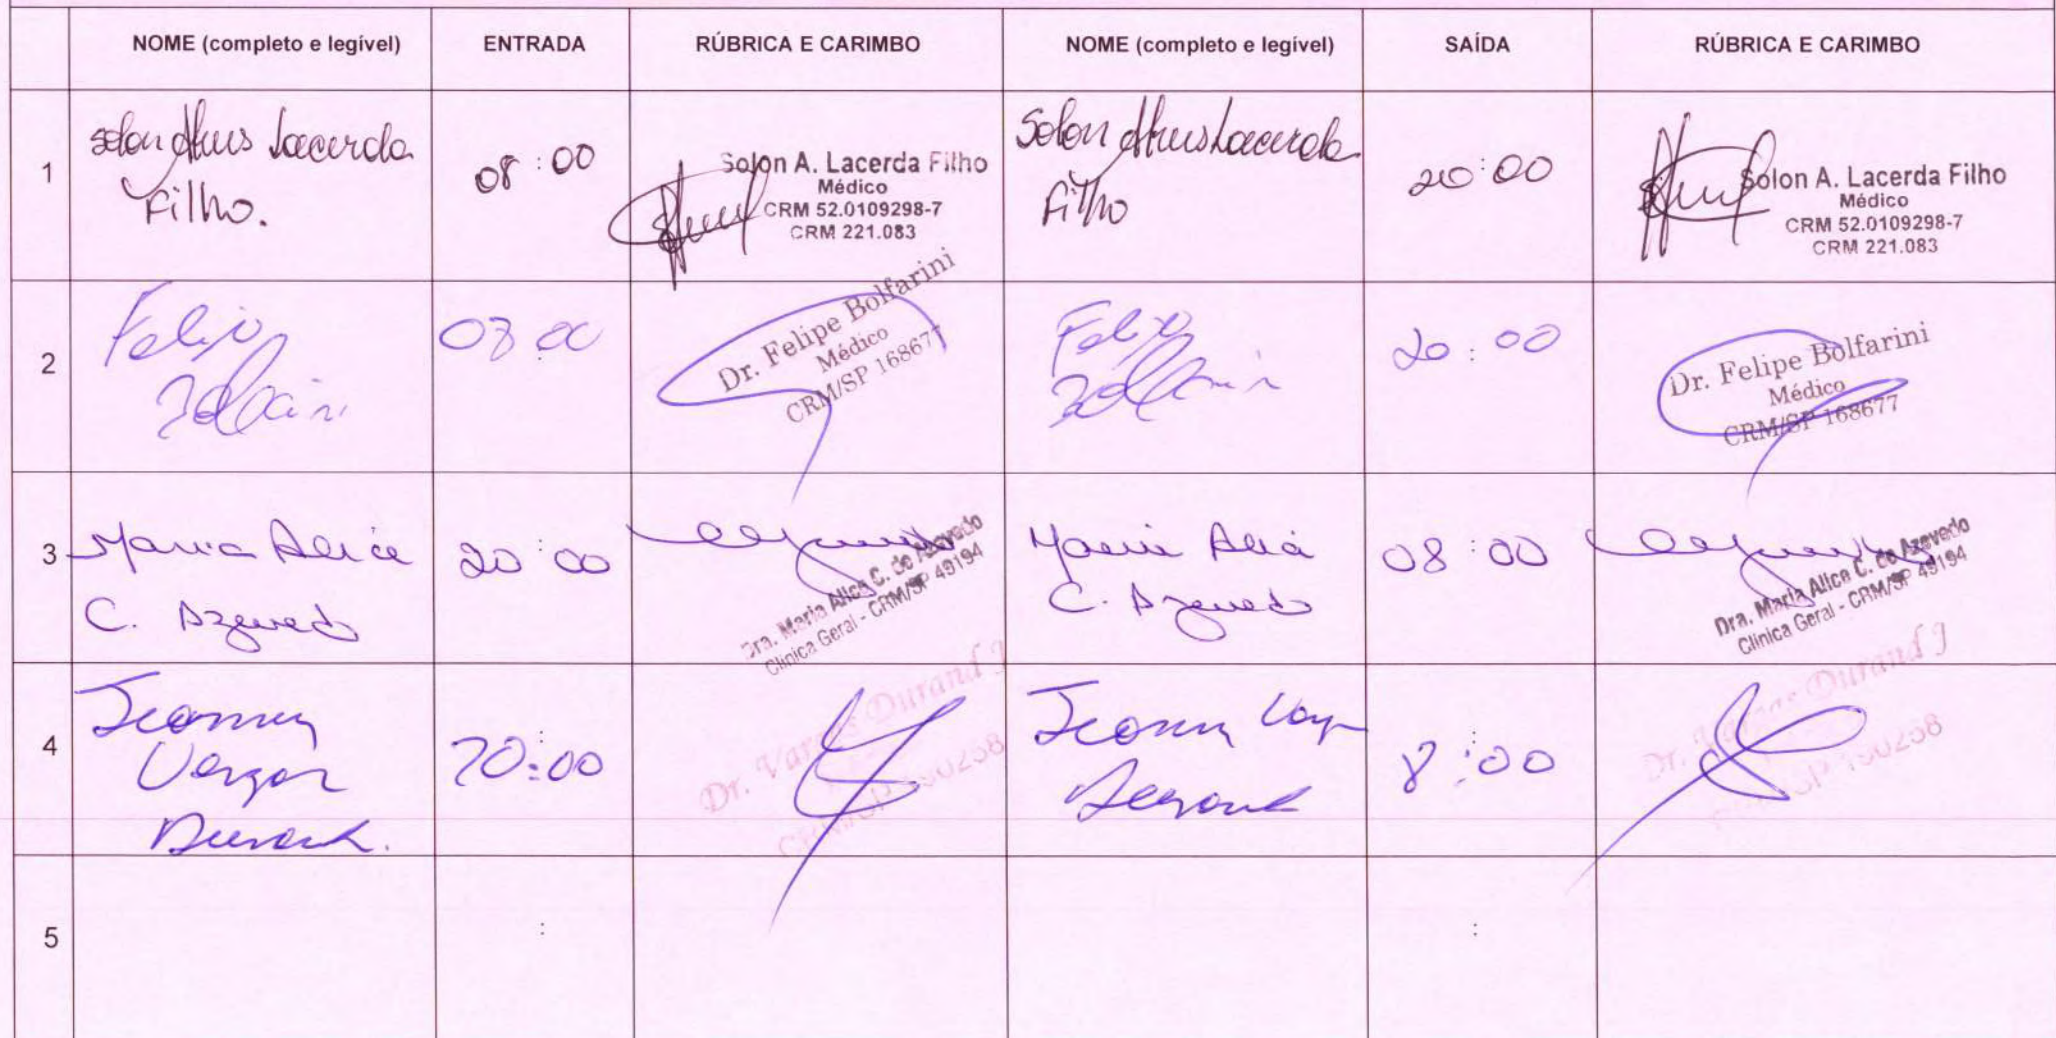 NOME (completo e legível) ENTRADA RÚBRICA E CARIMBO NOME (completo e legível) SAÍDA RÚBRICA E CARIMBO
1
Solon Lacerda
Filho.
08:00
Solon A. Lacerda Filho
Médico
CRM 52.0109298-7
CRM 221.083
Solon Lacerda
Filho
20:00
Solon A. Lacerda Filho
Médico
CRM 52.0109298-7
CRM 221.083
2
Felipe
08:00
Dr. Felipe Bolfarini
Médico
CRM/SP 168677
Felipe
20:00
Dr. Felipe Bolfarini
Médico
CRM/SP 168677
3
Maria Alice
C. Azevedo
20:00
Dra. Maria Alice C. de Azevedo
Clínica Geral - CRM/SP 49194
Maria
C. Azevedo
08:00
Dra. Maria Alice C. de Azevedo
Clínica Geral - CRM/SP 49194
4
20:00
Dr. Vargas Durand J
8:00
Dr. Vargas Durand J
5
:
: